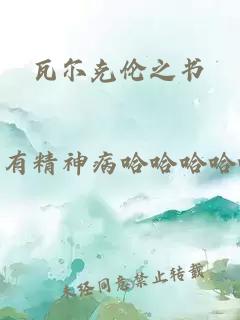 瓦尔克伦之书
有精神病哈哈哈哈
未经同意禁止转载